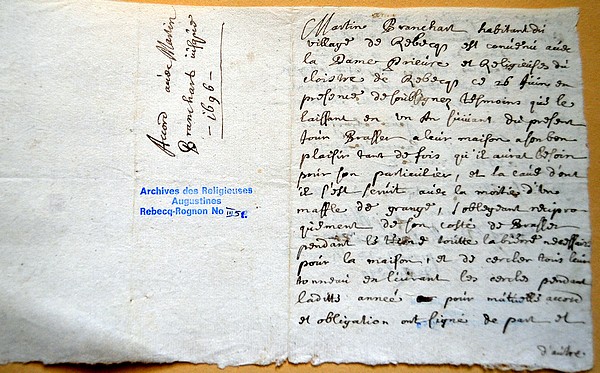 Acord avec Martin
Branchart
- 1696 -
Archives des Religieuses
Augustines
Rebecq-Rognon No III 51.
Martine Branchart habitant du
village de Rebecq est convenu avec
la Dame Prieure et Religieuses du
cloistre de Rebecq ce 26 Juin en
presence de soubsignez tesmoins que le
laissant en un an suivant du present
jour Brasser a leur maison a son bon
plaisir tant de fois qu'il aurat besoin
pour son particulier, et la cave dont
il s'est servit avec la moitiez d'une
maffle de grange, s'obligeant recipro
quement de son costez de Brasser
pendant le terme toutte la biere necessair
pour la maison, et de cercler tous leur
tonneau en livrant les cercle pendant
laditte annee pour mutuelle accord
et obligation ont signe de part et
d'autre.